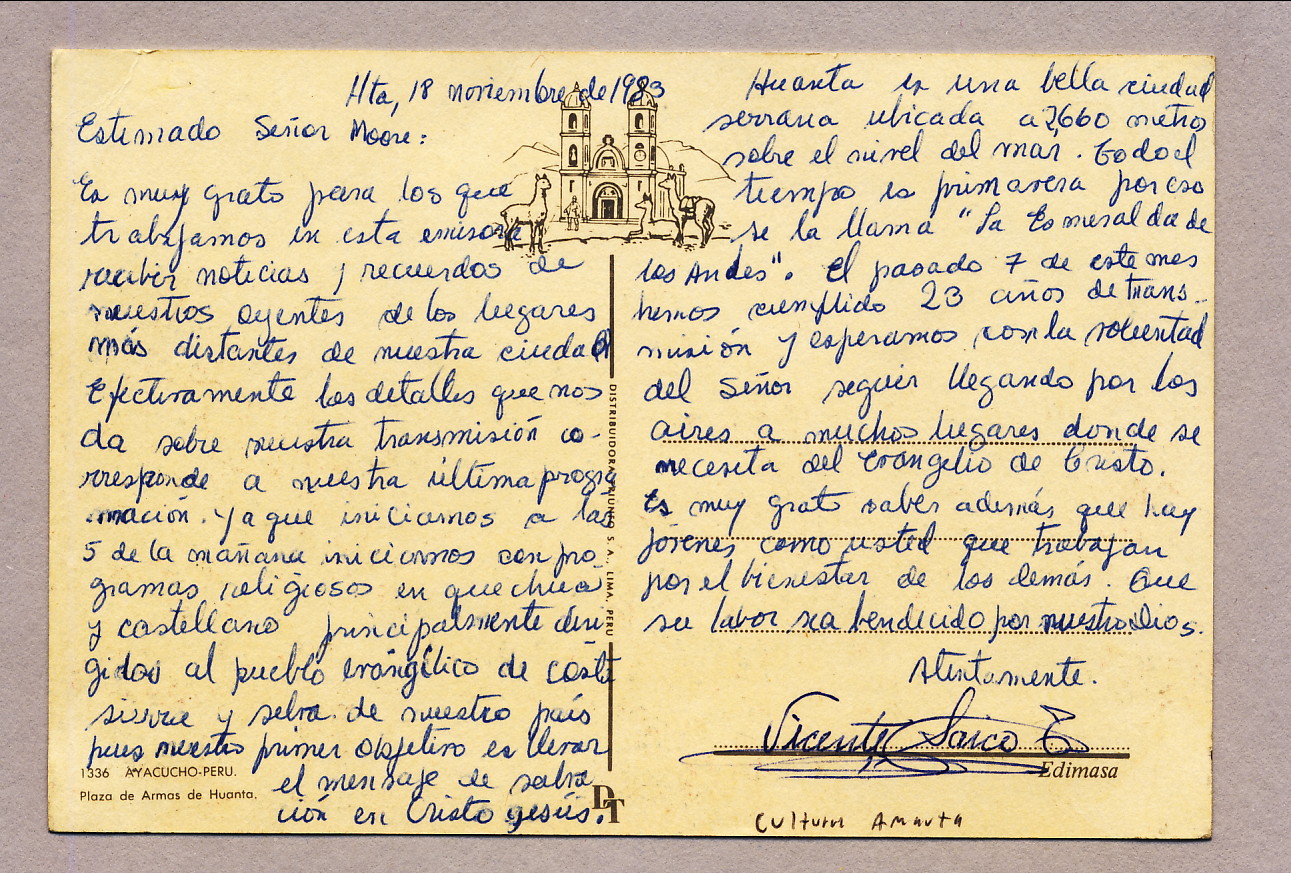 Hta, 18 noviembre de 1983
Estimado Señor Moore:
Es muy grato para los que
trabajamos en esta emisora
recibir noticias y recuerdos de
nuestros oyentes de los lugares
más distantes de nuestra ciudad
Efectivamente los detalles que nos
da sobre nuestra transmisión co-
rresponde a nuestra última progra
mación. Ya que iniciamos a las
5 de la mañana iniciamos con pro
gramas religiosos en quechua
y castellano principalmente diri
gidos al pueblo evangélico de costa
sierra y selva de nuestro país
pues nuestro primer objetivo es llevar
el mensaje de salva
ción en Cristo Jesús.
1336 AYACUCHO-PERU.
Plaza de Armas de Huanta.
DISTRIBUIDORA TRIUNFO S. A., LIMA, PERU
DT
Huanta es una bella ciudad
serrana ubicada a 2660 metros
sobre el nivel del mar. Todo el
tiempo es primavera por eso
se la llama "La Esmeralda de
los Andes". El pasado 7 de este mes
hemos cumplido 23 años de trans-
misión y esperamos con la voluntad
del Señor seguir llegando por los
aires a muchos lugares donde se
necesita del Evangelio de Cristo.
Es muy grato saber además que hay
jóvenes como usted que trabajan
por el bienestar de los demás. Que
su labor sea bendecido por nuestro Dios.
Atentamente.
Vicente Saico E
Edimasa
Cultura Amauta